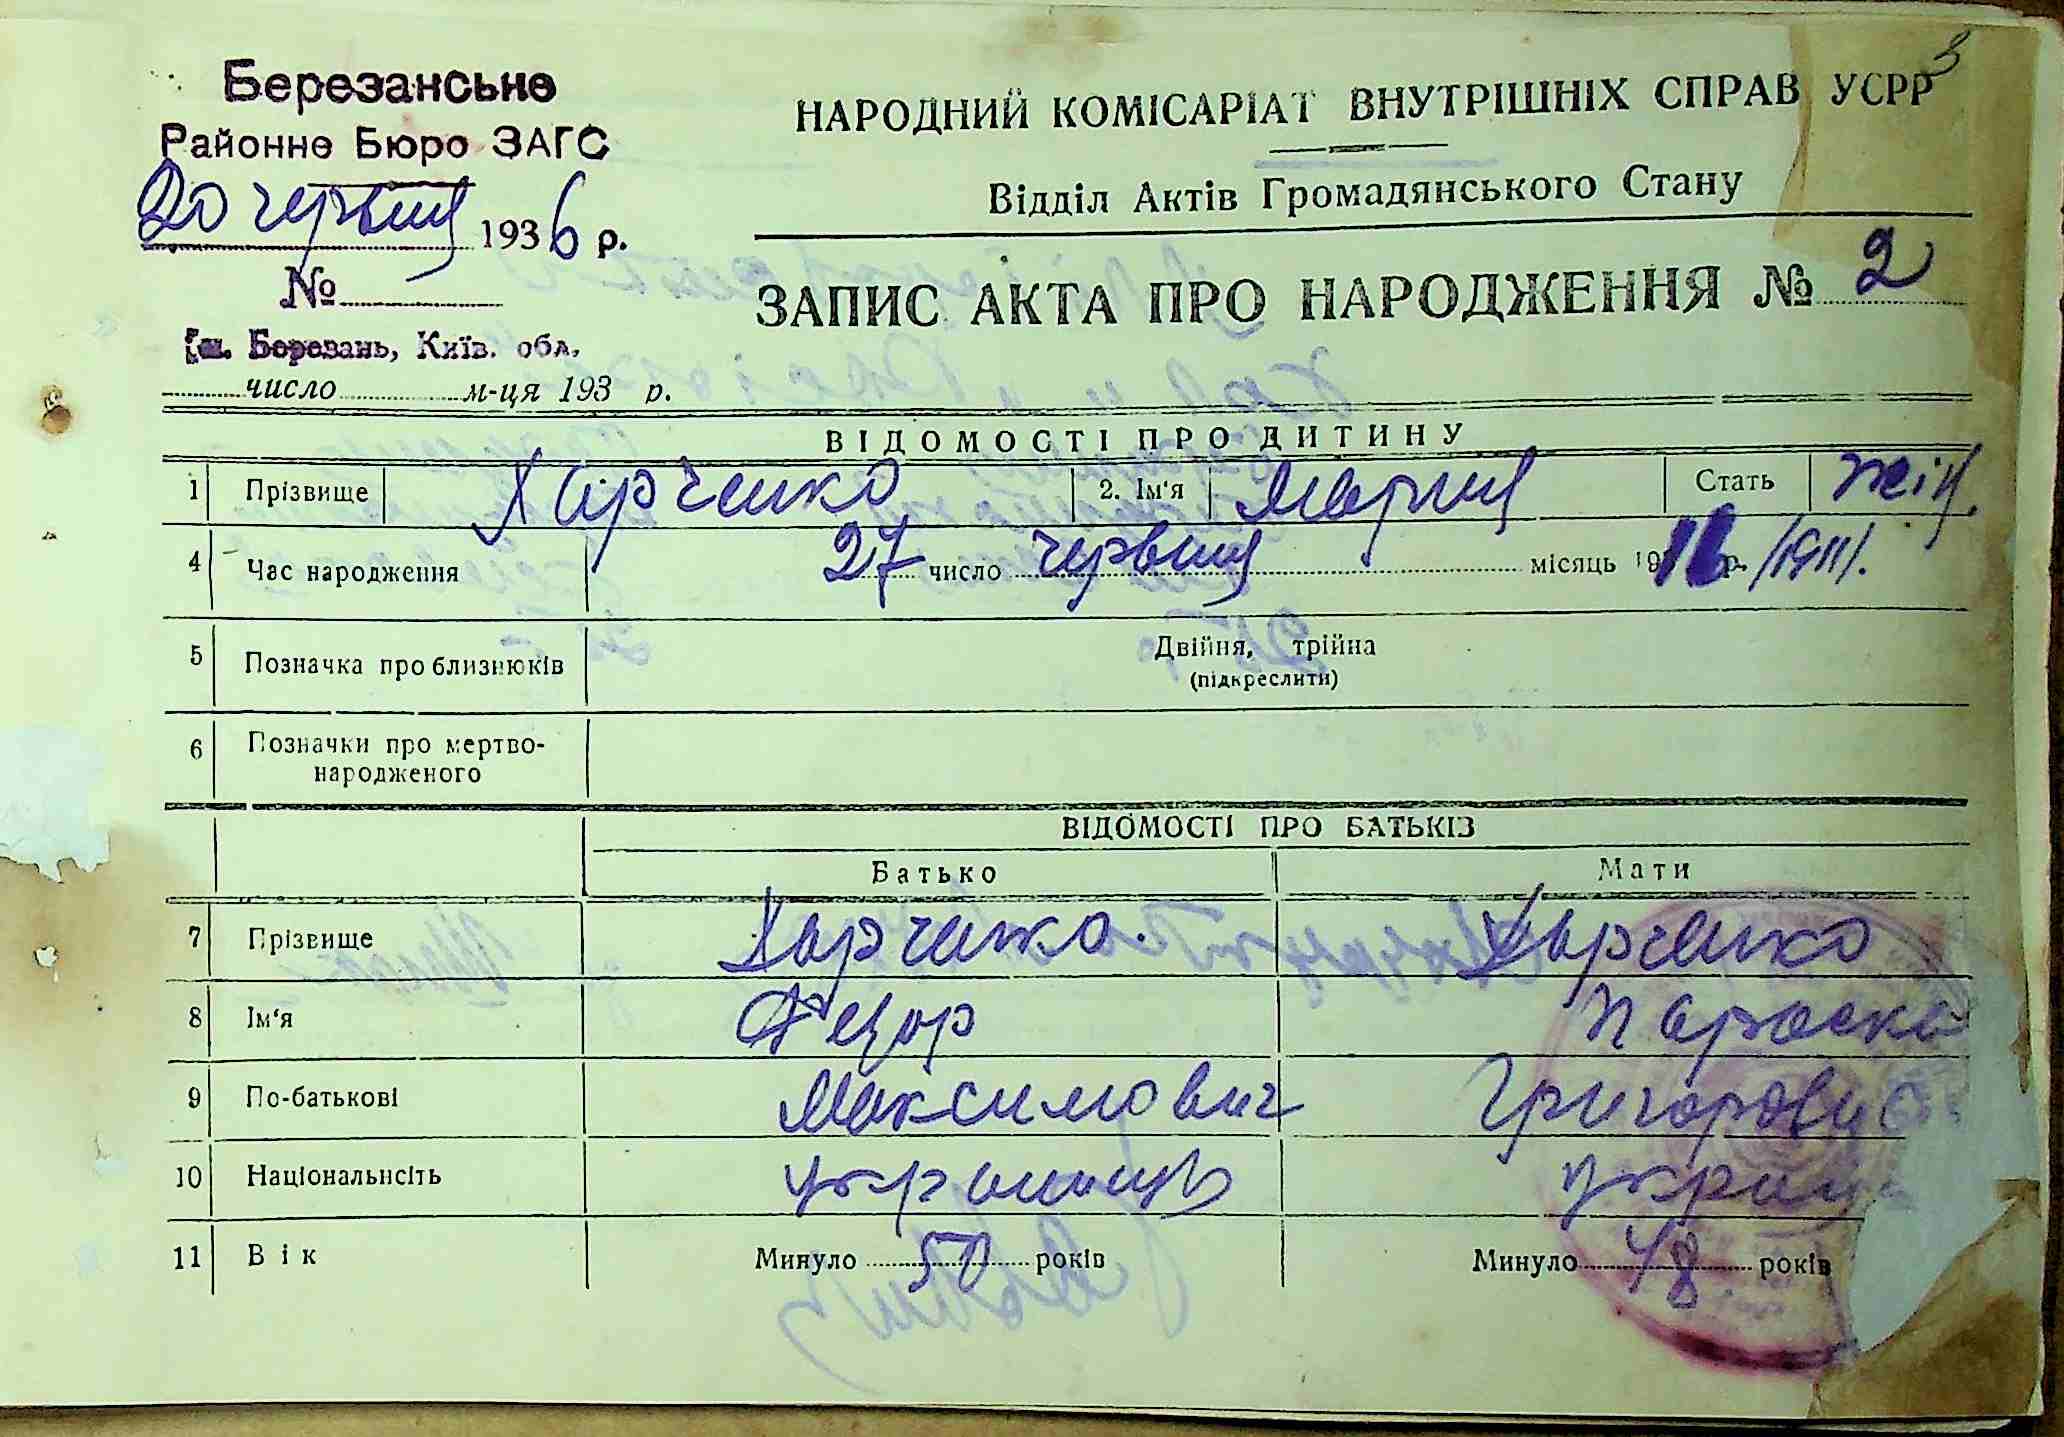 3
Березанське
Районне Бюро ЗАГС
20 червня 1936 р.
№
Березань, Київ. обл.
число м-ця 193 р.
НАРОДНИЙ КОМІСАРІАТ ВНУТРІШНІХ СПРАВ УСРР
Відділ Актів Громадянського Стану
ЗАПИС АКТА ПРО НАРОДЖЕННЯ № 2
ВІДОМОСТІ ПРО ДИТИНУ
1 Прізвище Харченко 2. Ім'я Мария Стать жін.
4 Час народження 27 число червня місяць 19 р. /1911/.
5 Позначка про близнюків Двійня, трійна
(підкреслити)
6 Позначки про мертво-
народженого
ВІДОМОСТІ ПРО БАТЬКІВ
Батько Мати
7 Прізвище Харченко Харченко
8 Ім'я Федор Параска
9 По-батькові Максимович Григоровн
10 Національнсіть українць україн
11 Вік Минуло 50 років Минуло 48 років